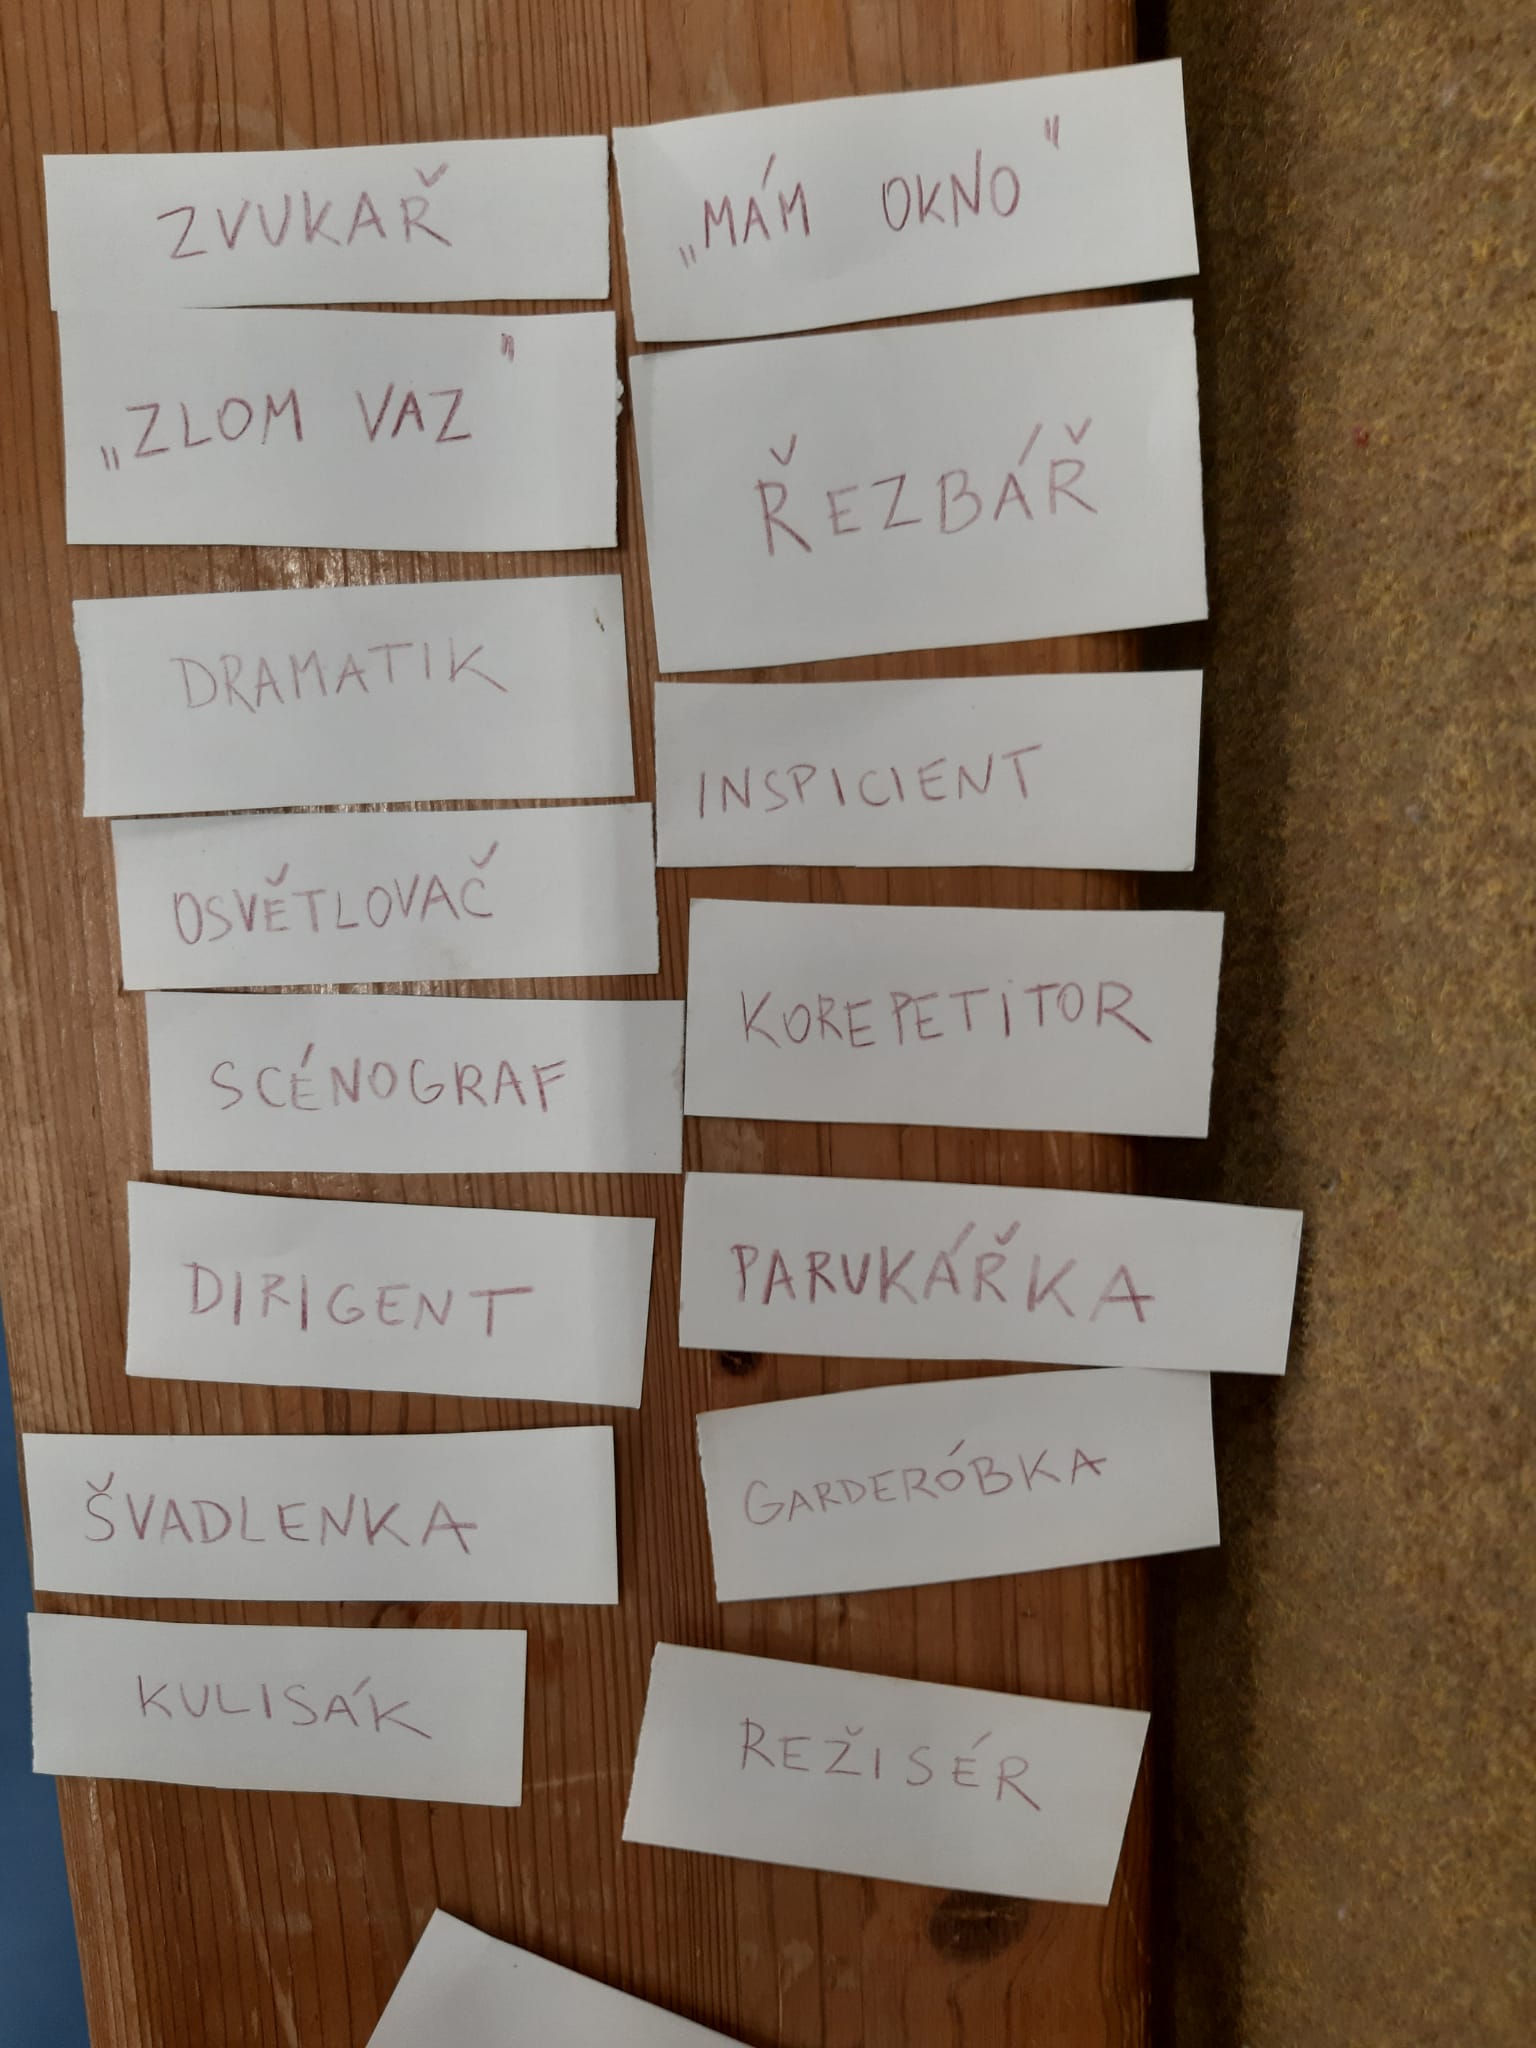 ZVUKAŘ
„MÁM OKNO"
„ZLOM VAZ"
ŘEZBÁŘ
DRAMATIK
INSPICIENT
OSVĚTLOVAČ
KOREPETITOR
SCÉNOGRAF
PARUKÁŘKA
DIRIGENT
GARDERÓBKA
ŠVADLENKA
KULISÁK
REŽISÉR